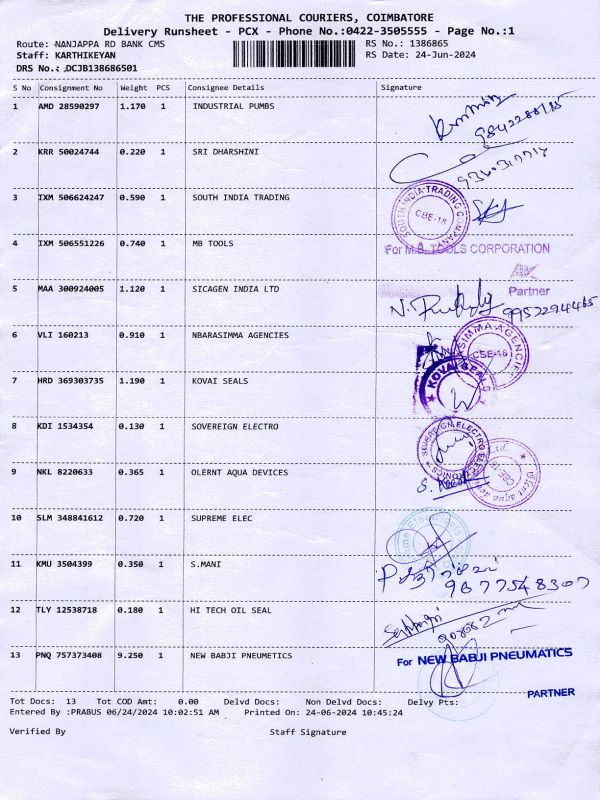 THE PROFESSIONAL COURIERS, COIMBATORE
Delivery Runsheet - PCX - Phone No.:0422-3505555 - Page No.:1
Route: NANJAPPA RD BANK CMS RS No.: 1386865
Staff: KARTHIKEYAN RS Date: 24-Jun-2024
DRS No.: DCJB138686501
S No Consignment No Weight PCS Consignee Details Signature
1 AMD 28590297 1.170 1 INDUSTRIAL PUMBS
2 KRR 50024744 0.220 1 SRI DHARSHINI
3 IXM 506624247 0.590 1 SOUTH INDIA TRADING
SOUTH INDIA TRADING COMPANY
CBE-18
4 IXM 506551226 0.740 1 MB TOOLS
For M.B. TOOLS CORPORATION
Partner
5 MAA 300924005 1.120 1 SICAGEN INDIA LTD
9952294465
6 VLI 160213 0.910 1 NBARASIMMA AGENCIES
SIMMA AGENCIES
CBE-18
7 HRD 369303735 1.190 1 KOVAI SEALS
KOVAI SEALS
8 KDI 1534354 0.130 1 SOVEREIGN ELECTRO
SOVEREIGN ELECTRO
9 NKL 8220633 0.365 1 OLERNT AQUA DEVICES
10 SLM 348841612 0.720 1 SUPREME ELEC
11 KMU 3504399 0.350 1 S.MANI
9677548307
12 TLY 12538718 0.180 1 HI TECH OIL SEAL
13 PNQ 757373408 9.250 1 NEW BABJI PNEUMETICS
For NEW BABJI PNEUMATICS
PARTNER
Tot Docs: 13 Tot COD Amt: 0.00 Delvd Docs: Non Delvd Docs: Delvy Pts:
Entered By :PRABUS 06/24/2024 10:02:51 AM Printed On: 24-06-2024 10:45:24
Verified By Staff Signature